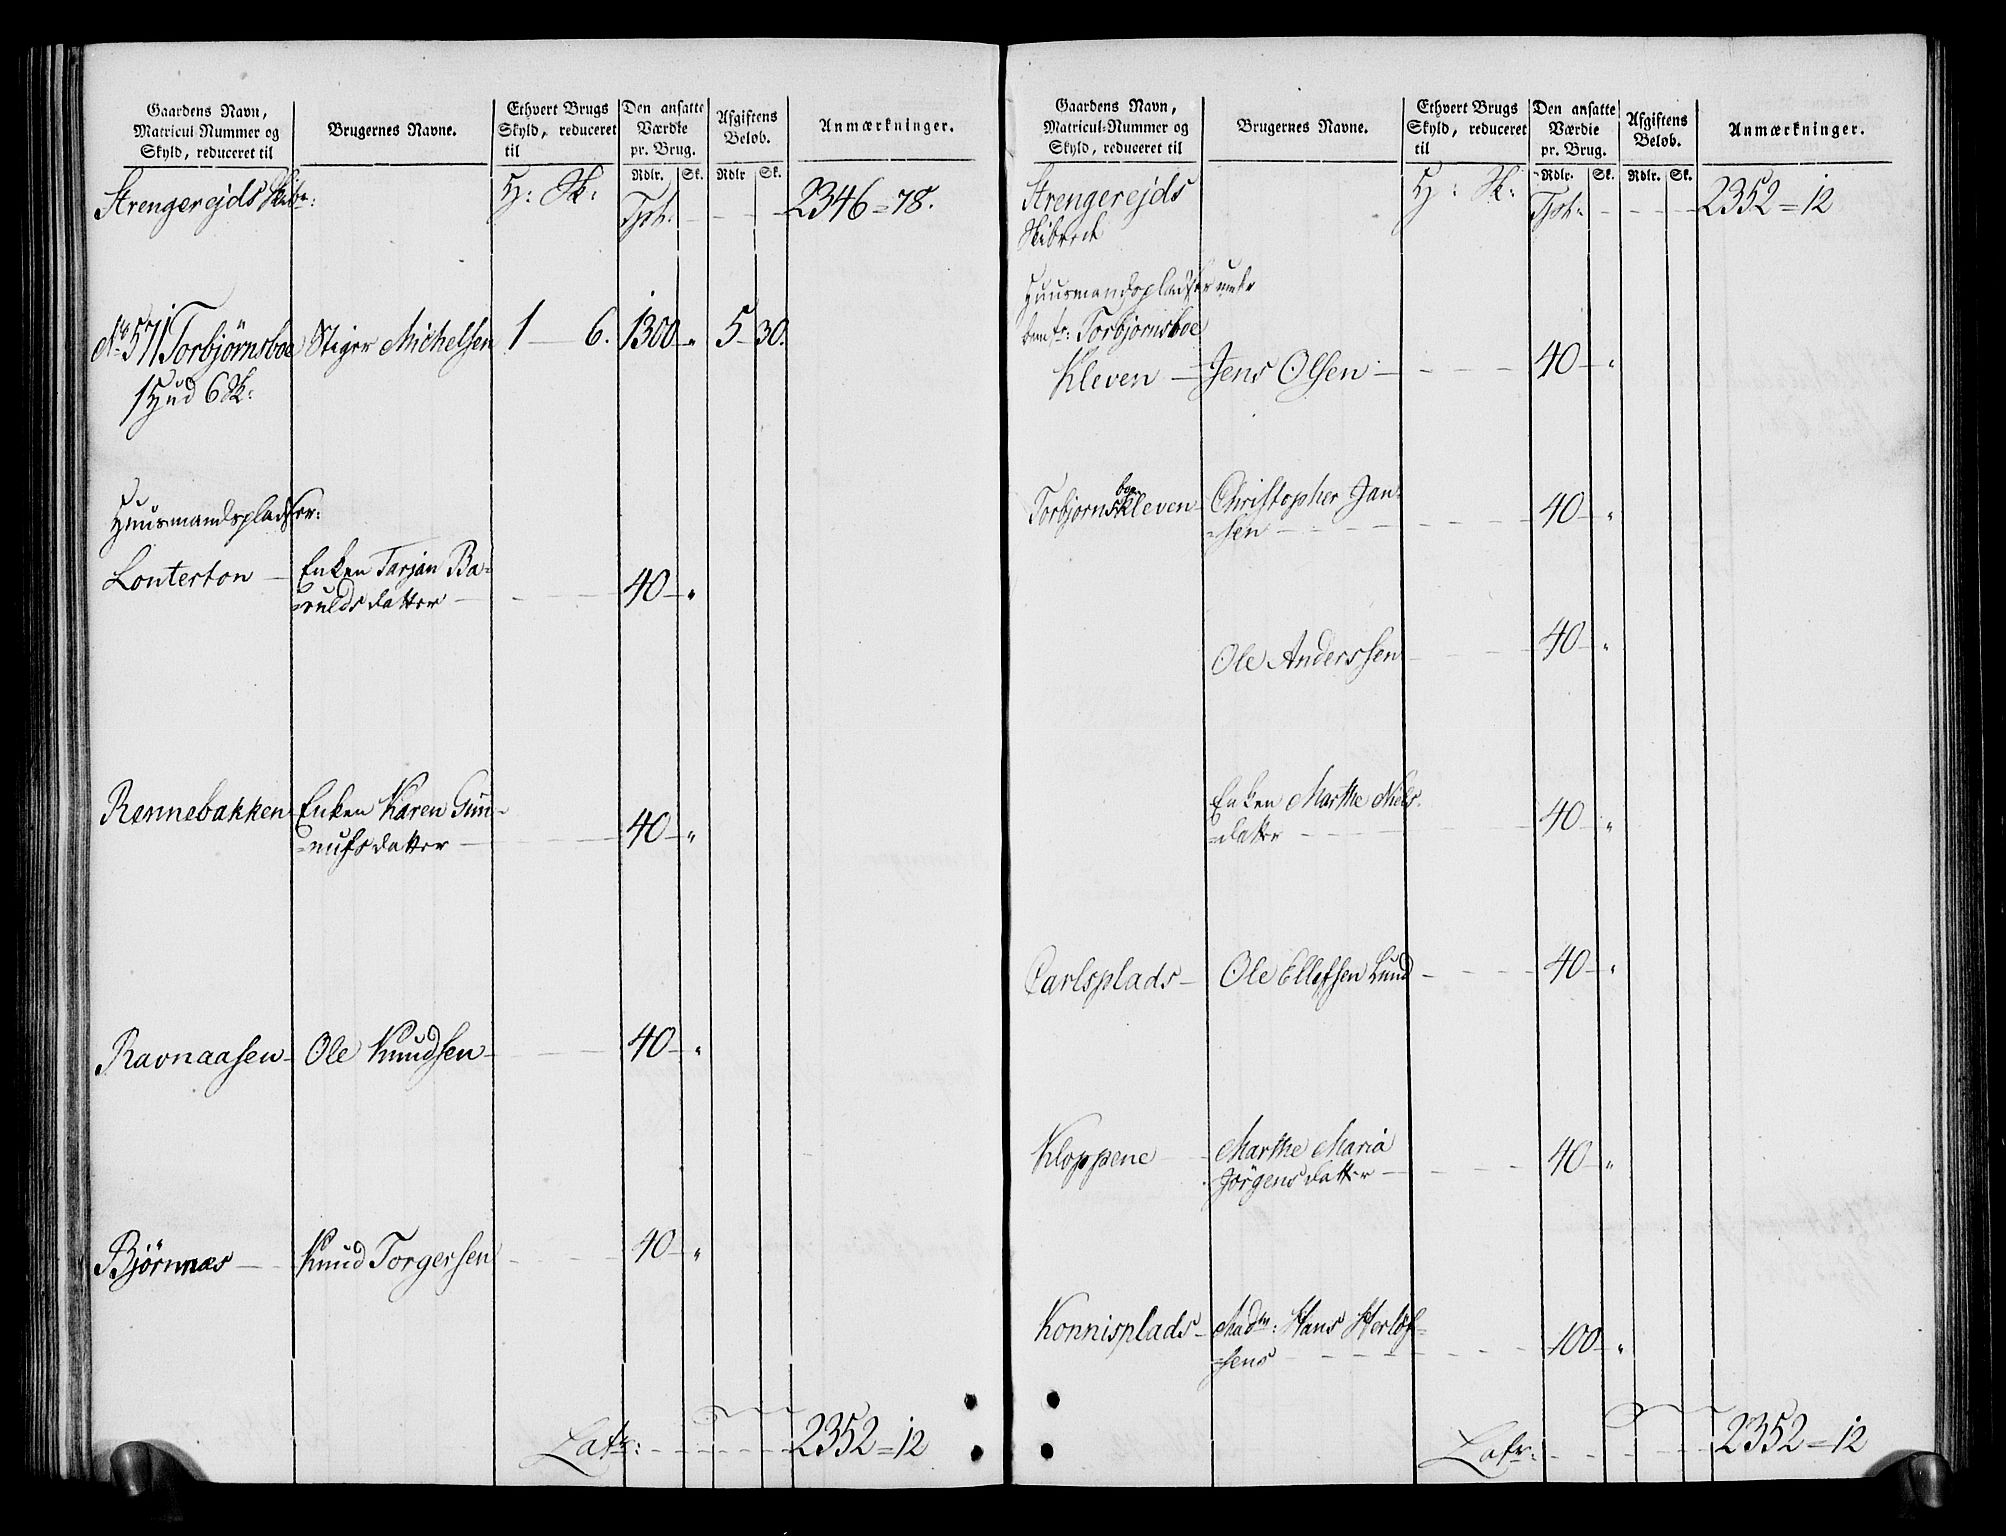 Gaardens Navn, Matricul-Nummer og Skyld, reduceret til
Brugernes Navne.
Ethvert Brugs Skyld, reduceret til
Den ansatte Værdie pr. Brug.
Afgiftens Beløb.
Anmærkninger.
Rdlr. Sk. Rdlr Sk.
Strengerejds Skibr: H: Sk: Tpt: 2346=78.
No 571 Torbjørnsboe Stiger Michelsen 1 6. 1300 " 5 30.
1 Hud 6 Sk:
Huusmandspladser:
Lonterton Enken Tarjan Ba-
=rulds datter 40 "
Rennebakken Enken Karen Gun-
=nufsdatter 40 "
Ravnaasen Ole Knudsen 40 "
Bjørnnæs Knud Torgersen 40 "
Latr: 2352=12
Gaardens Navn, Matricul-Nummer og Skyld, reduceret til
Brugernes Navne.
Ethvert Brugs Skyld, reduceret til
Den ansatte Værdie pr. Brug.
Afgiftens Beløb.
Anmærkninger.
Rdlr. Sk. Rdlr. Sk.
Strengerejds H: Sk: Tpt: 2352=12
Skibrede
Huusmandspladser
Torbjornsboe
Kleven Jens Olsen 40 "
Torbjornsboekleven Christopher Jan-
=sen 40 "
Ole Anderssen 40 "
Enken Marthe Niels-
=datter 40 "
Carlsplads Ole Ellefsen Lund 40 "
Kloppene Marthe Maria
Jörgensdatter 40 "
Konnisplads Madm: Hans Herlof-
=sens 100 "
Latr: 2352=12